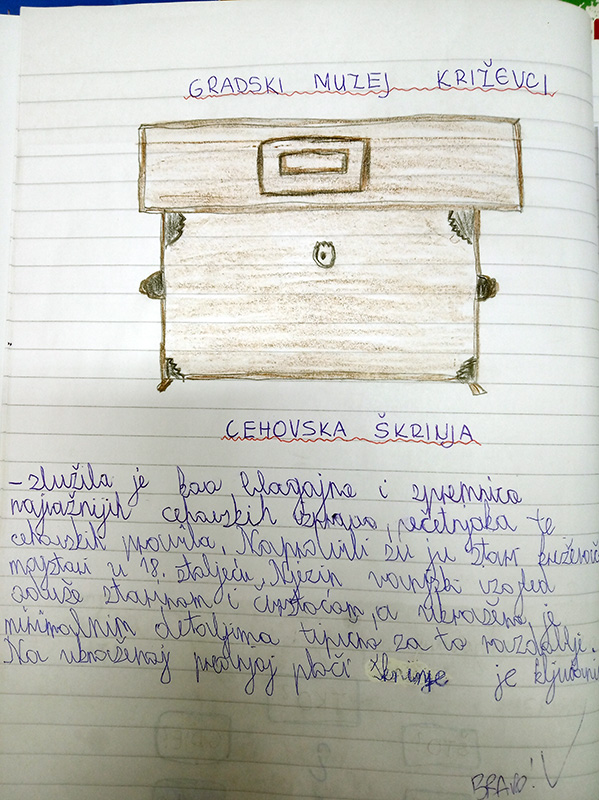 GRADSKI MUZEJ KRIŽEVCI
CEHOVSKA ŠKRINJA
- služila je kao blagajna i spremnica
najvažnijih cehovskih isprava, pečatnjaka te
cehovskih pravila. Napravili su ju stari križevački
majstori u 18. stoljeću. Njezin vanjski izgled
odiše starinom i čvrstoćom, a ukrašena je
minimalnim detaljima tipično za to razdoblje.
Na ukrašenoj prednjoj ploči škrinje je
BRAVO!